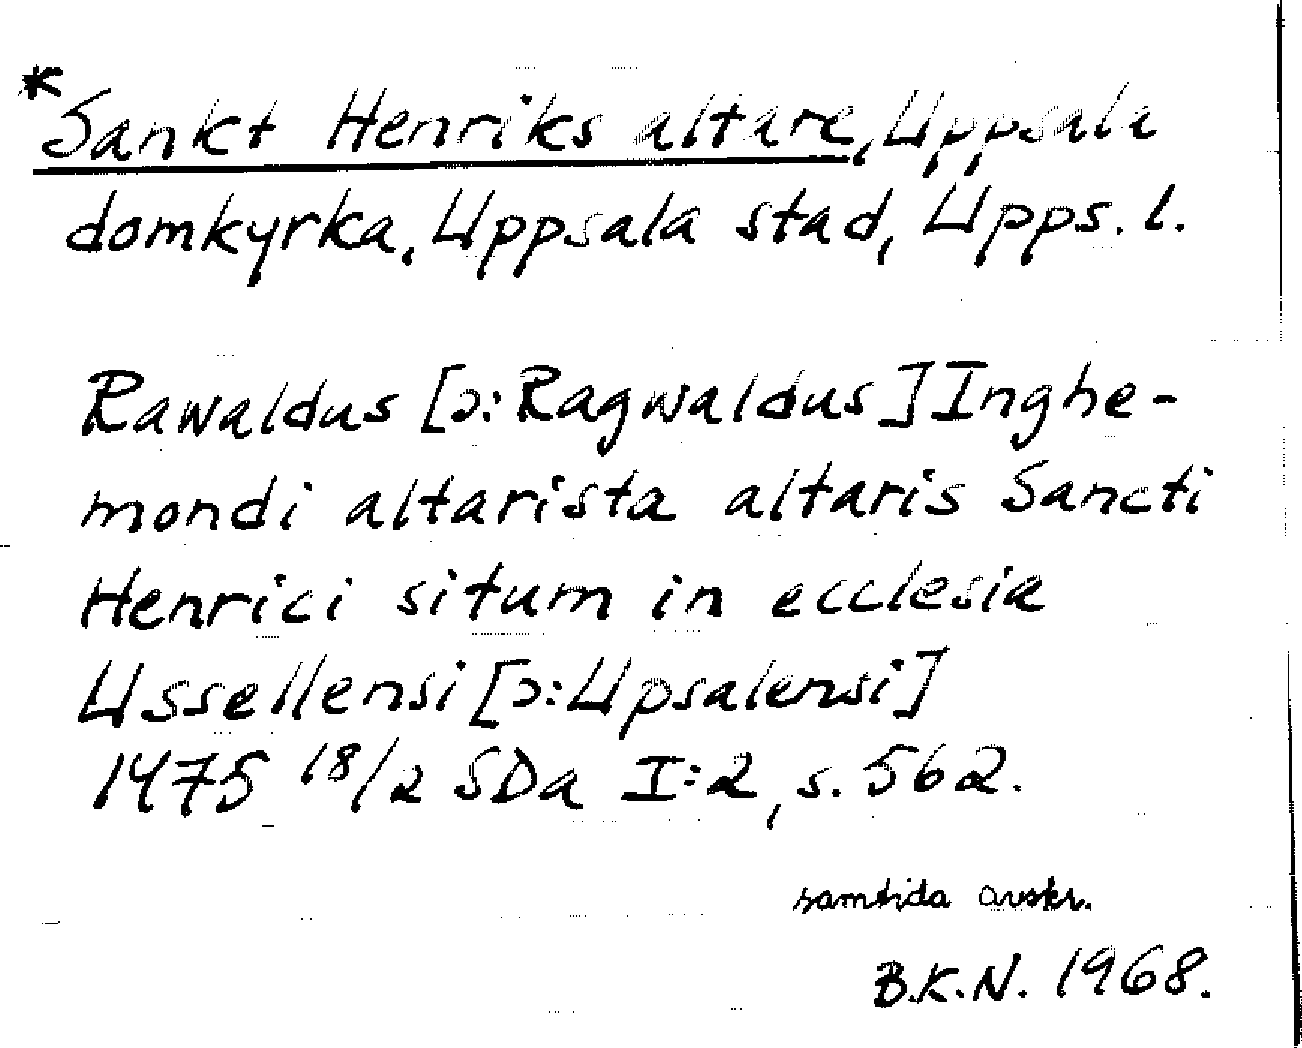 *Sankt Henriks altare, Uppsala
domkyrka, Uppsala stad, Upps. l.
Rawaldus [ɔ: Ragwaldus] Inghe-
mondi altarista altaris Sancti
Henrici situm in ecclesia
Ussellensi [ɔ: Upsalensi]
1475 18/2 SDa I:2, s. 562.
samtida avskr.
B.K.N. 1968.